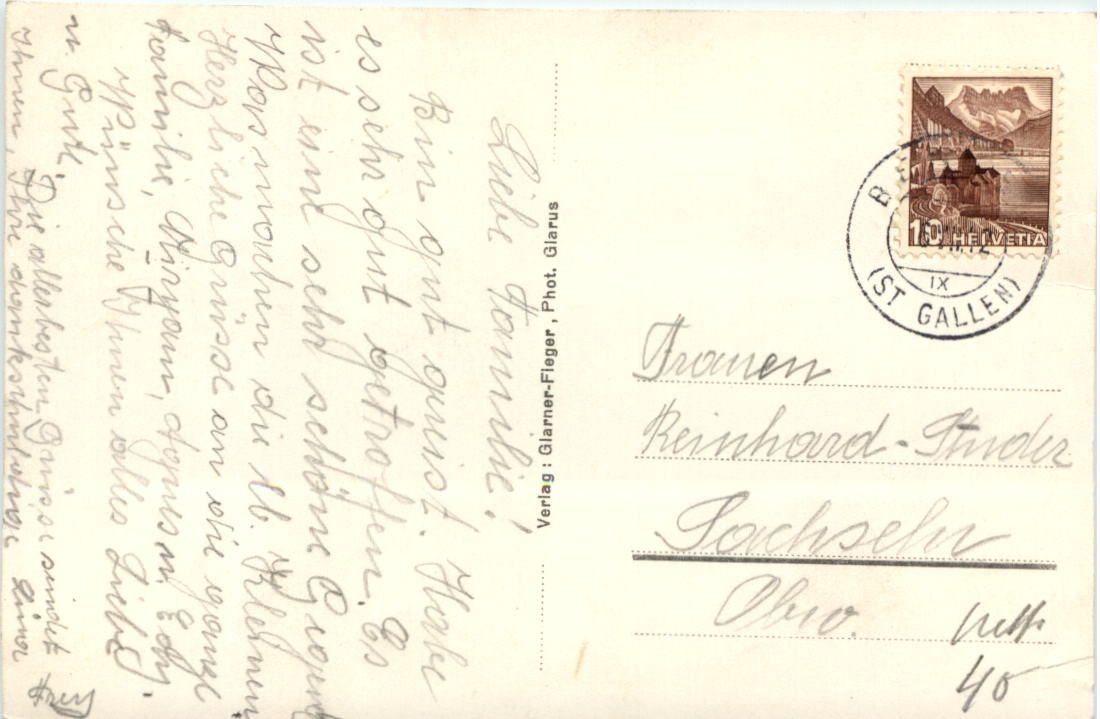 Liebe Familie!
Bin gut gereist. Habe
es sehr gut getroffen. Es
ist eine sehr schöne Gegend
Was machen die lb. Kleinen
Herzliche Grüsse an die ganze
Familie, Miryam, Agnes u. Edy.
Wünsche Ihnen alles Liebe
u. Gute.
Die allerbesten Grüsse sendet
Ihnen Ihre dankschuldige
Verlag: Glarner-Fleger, Phot. Glarus
10 HELVETIA
IX
(ST GALLEN)
Frauen
Reinhard-Studer
Sachseln
Obw.
40